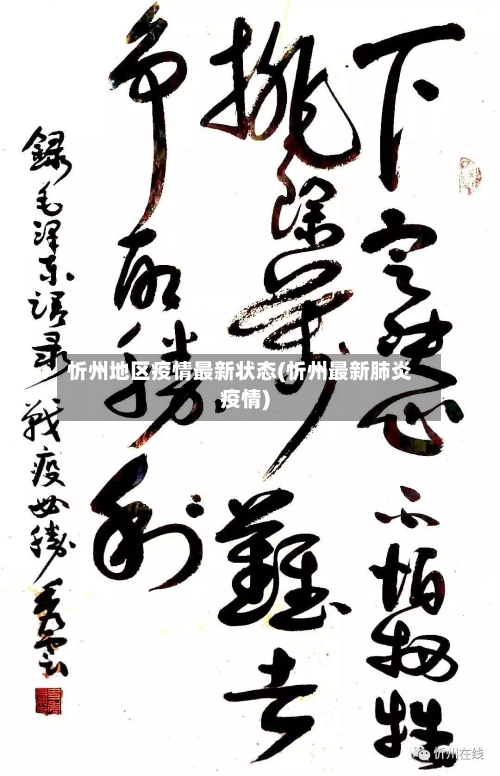 下定决心不怕牺牲
排除萬難去
争取勝利
錄毛泽东语录戰疫必勝秀雲
忻州地区疫情最新状态(忻州最新肺炎
疫情)
忻州在线